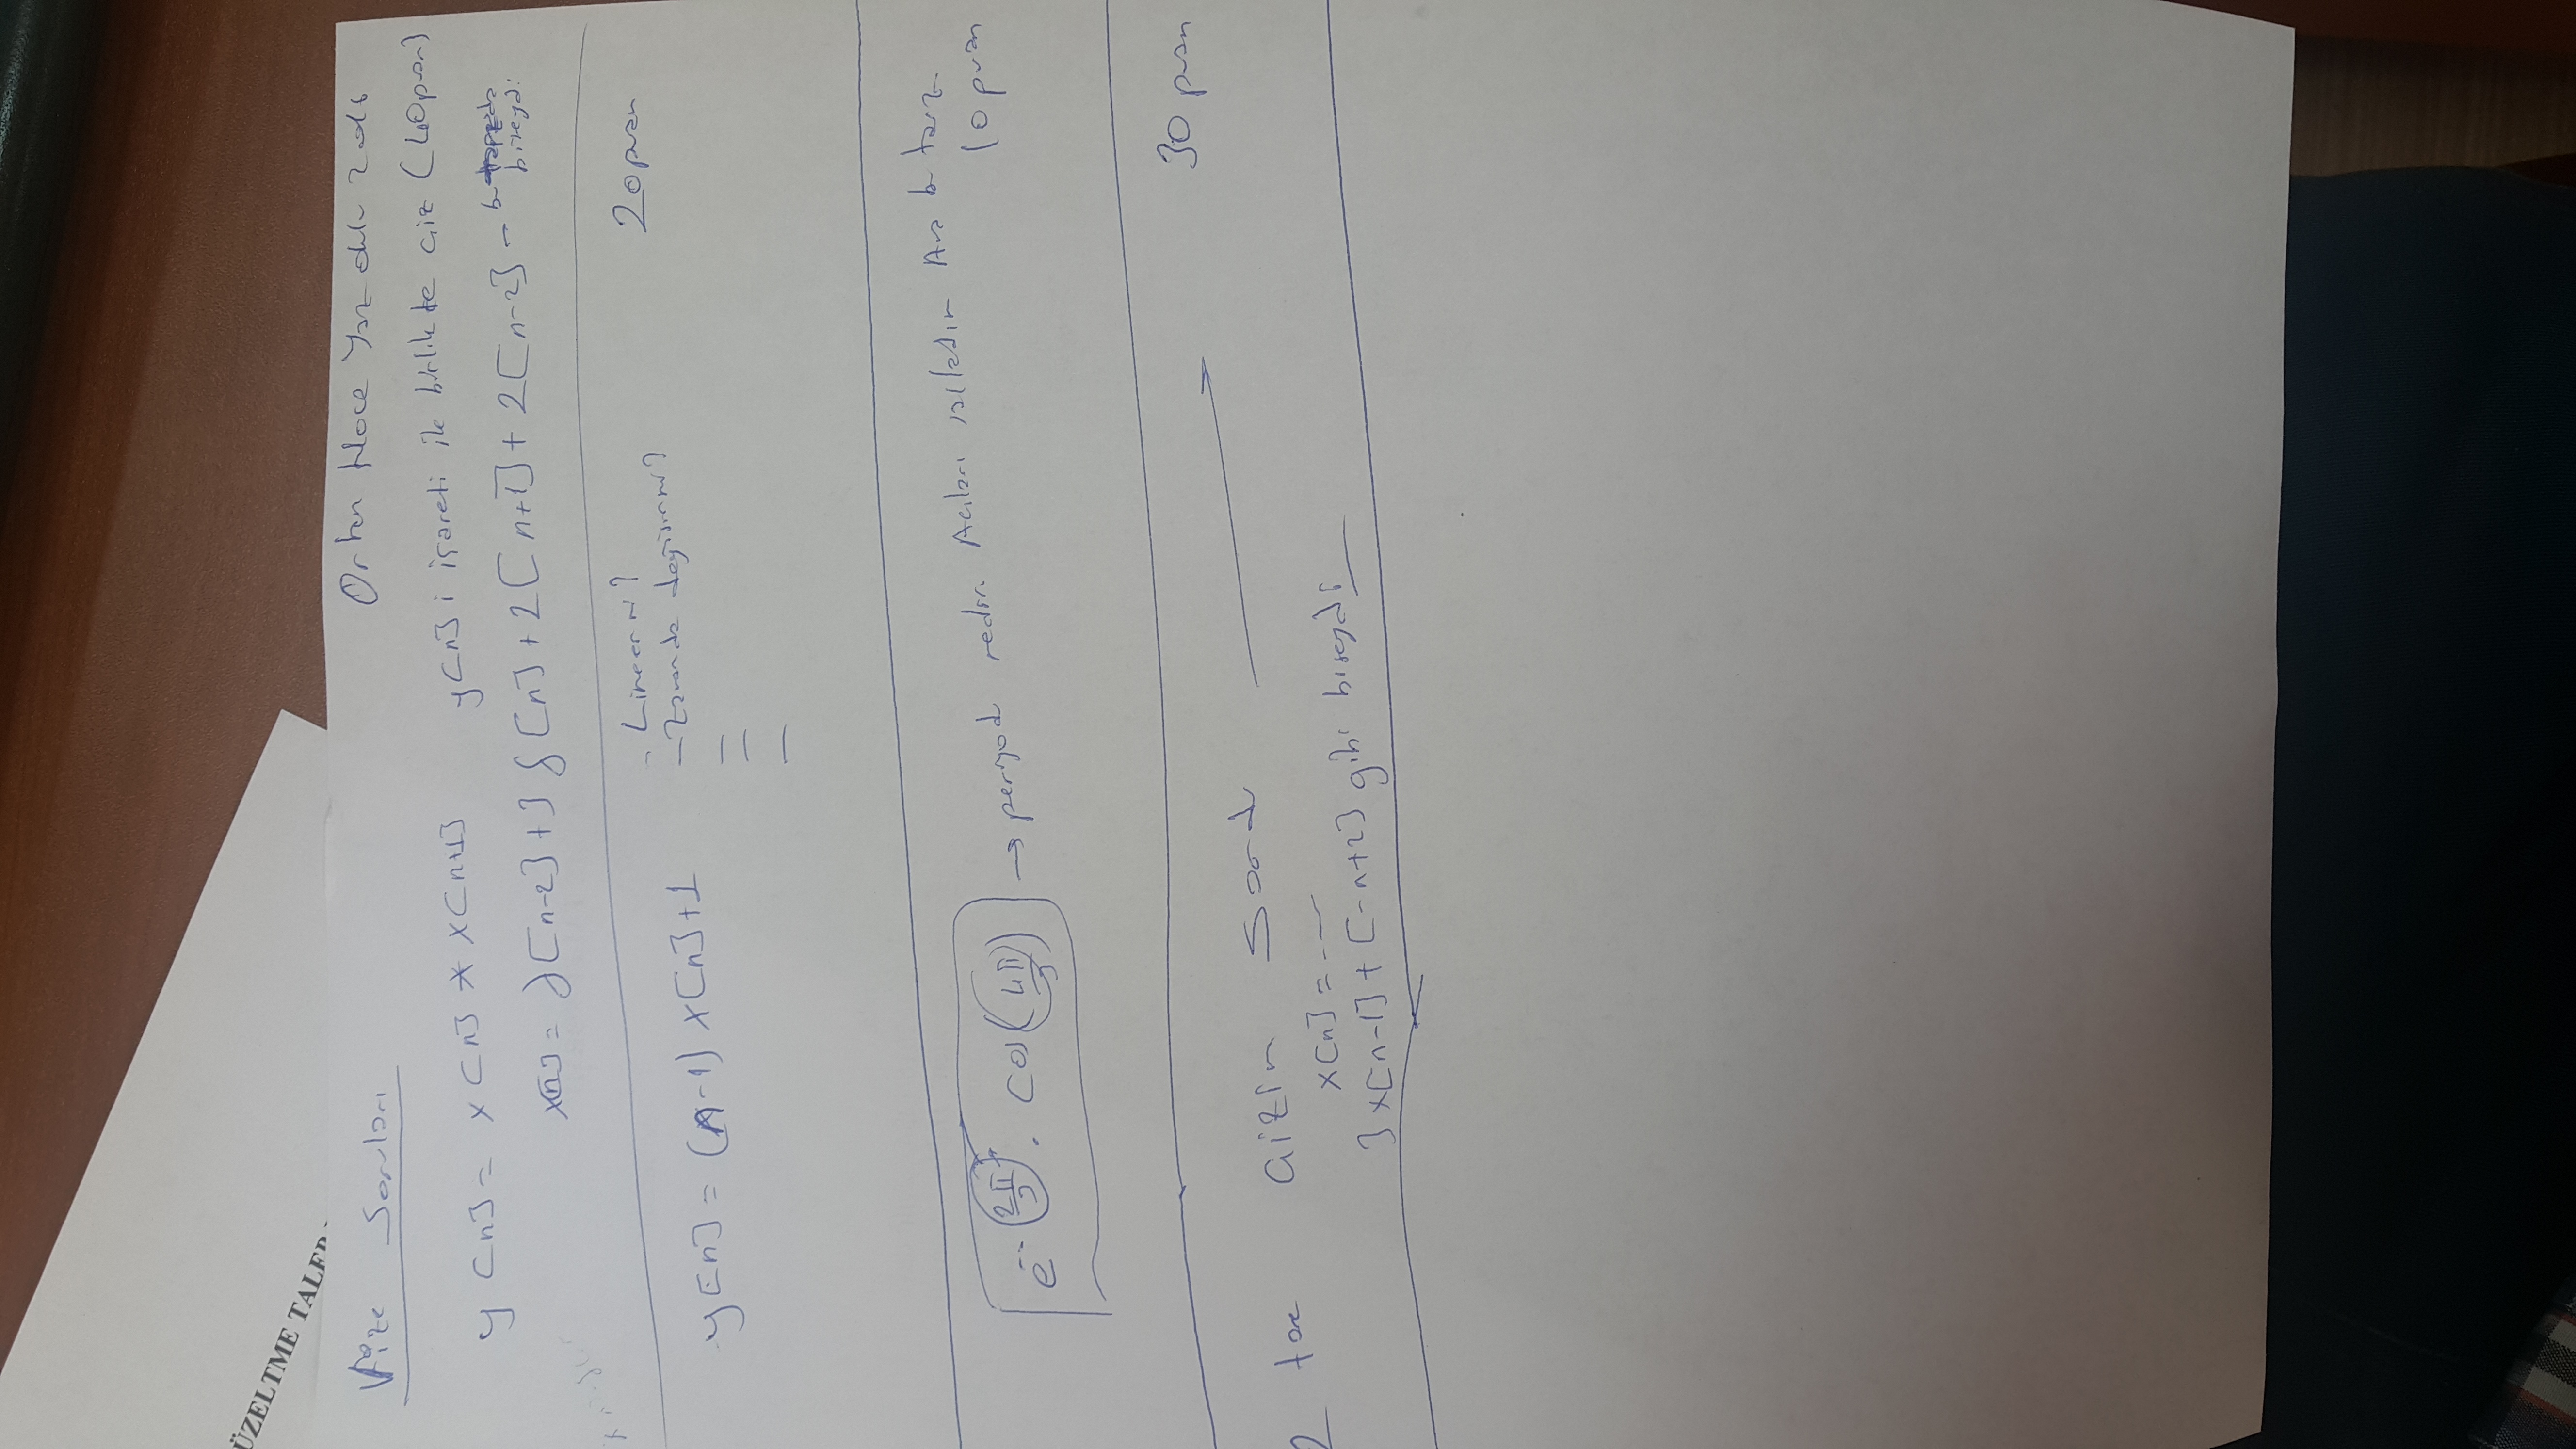 ÜZELTME TALEP
Vize Soruları
Orhan Hoca Yaz okulu 2016
y[n] = x[n] * x[n+1] y[n] i işareti ile birlikte Çiz (40 puan)
x[n] = δ[n-2] + 3 δ[n] + 2[n+1] + 2[n-2] - bu
bişeydi
y[n] = (n-1) x[n] + 1
- Lineer mi?
20 puan
- Zamanda değişir mi?
e 2π/3 . Cos(4π/3) → periyodu nedir. Açıları salladım Ama bu tarz
10 puan
30 puan
2 tane Çizim Sordu
x[n] = ---
3x[n-1] + [-n+2] gibi bişeydi